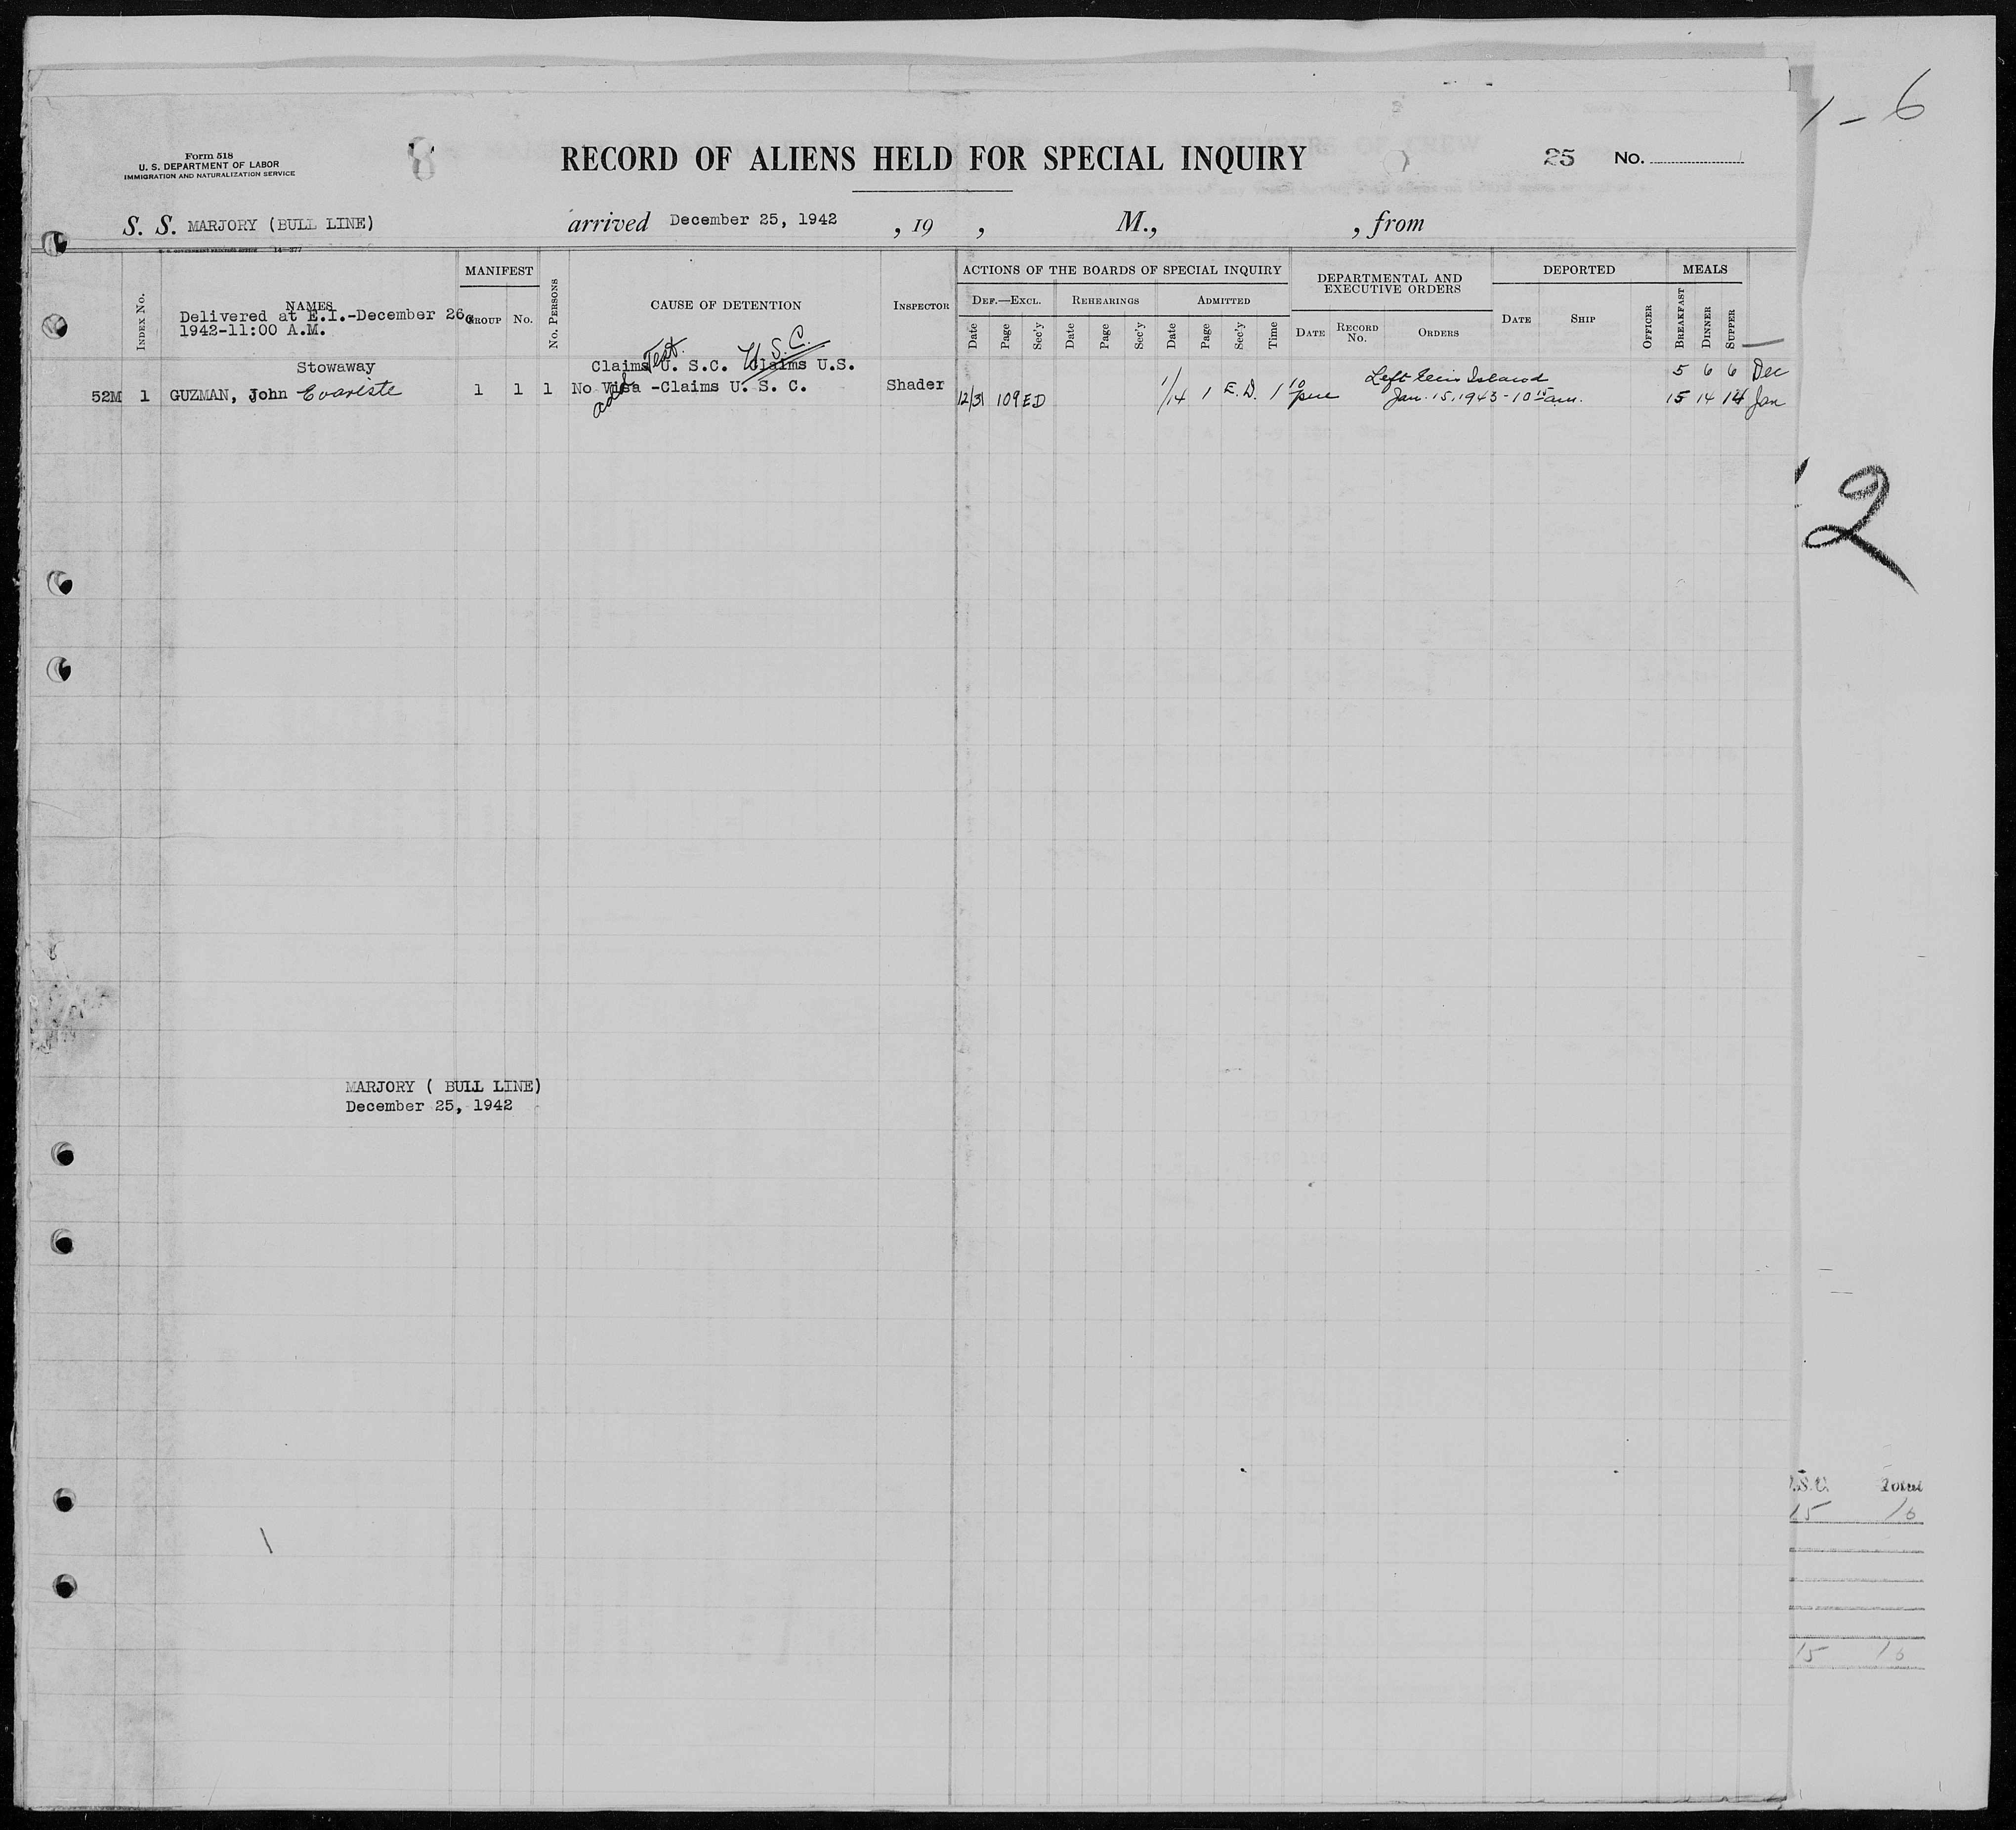 1 - 6
Form 518
U. S. DEPARTMENT OF LABOR
IMMIGRATION AND NATURALIZATION SERVICE
8
RECORD OF ALIENS HELD FOR SPECIAL INQUIRY
25 No.
S. S. MARJORY (BULL LINE) arrived December 25, 1942 , 19 , M., , from
14—377
INDEX No.
NAMES
Delivered at E.I.-December 26,
1942-11:00 A.M.
MANIFEST
GROUP
No.
No. PERSONS
CAUSE OF DETENTION
INSPECTOR
ACTIONS OF THE BOARDS OF SPECIAL INQUIRY
DEF.—EXCL.
REHEARINGS
ADMITTED
Date Page Sec'y Date Page Sec'y Date Page Sec'y Time
DEPARTMENTAL AND
EXECUTIVE ORDERS
DATE
RECORD
No.
ORDERS
DEPORTED
DATE
SHIP
OFFICER
MEALS
BREAKFAST
DINNER
SUPPER
Test. U.S.C.
Stowaway Claims U. S.C. Claims U.S. Left Ellis Island 5 6 6 Dec
52M 1 GUZMAN, John Evariste 1 1 1 No Visa -Claims U. S. C. Shader 12/31 109 ED 1/14 1 E.D. 1 10 pm Jan. 15, 1943 - 10 15 am. 15 14 14 Jan
2
MARJORY ( BULL LINE)
December 25, 1942
Total
15 16
15 16